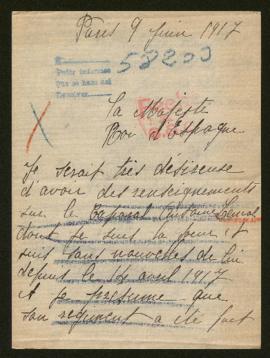 Paris 9 juin 1917
58200
Pedir informes
Sa Majesté
Roi d'Espagne
Je serait très désireuse
d'avoir des renseignements
sur le Caporal
dont je suis la sœur et
suis sans nouvelles de lui
depuis le 14 avril 1917
et je présume que
son régiment a été fait